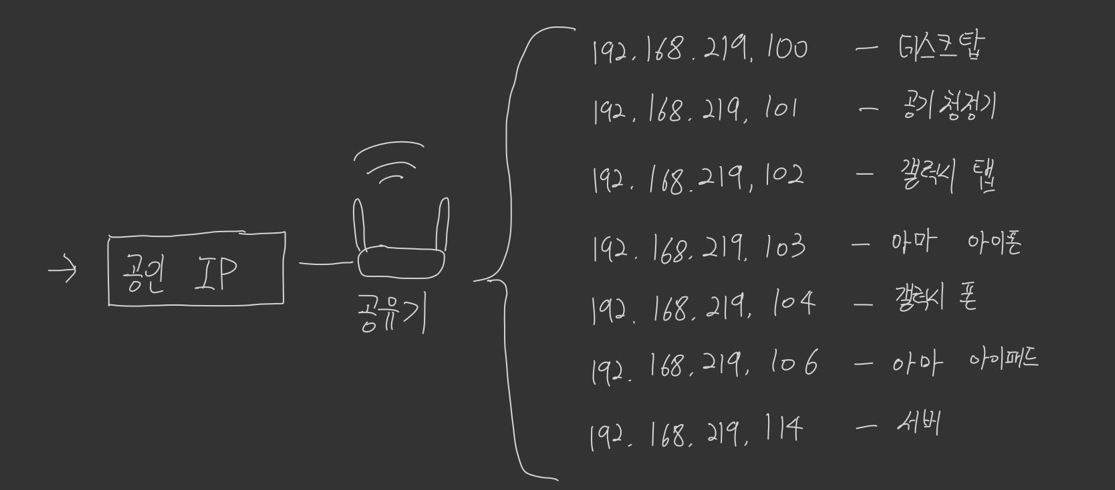 공인 IP
공유기
192.168.219.100 - 데스크탑
192.168.219.101 - 공기청정기
192.168.219.102 - 갤럭시 탭
192.168.219.103 - 아마 아이폰
192.168.219.104 - 갤럭시 폰
192.168.219.106 - 아마 아이패드
192.168.219.114 - 서버